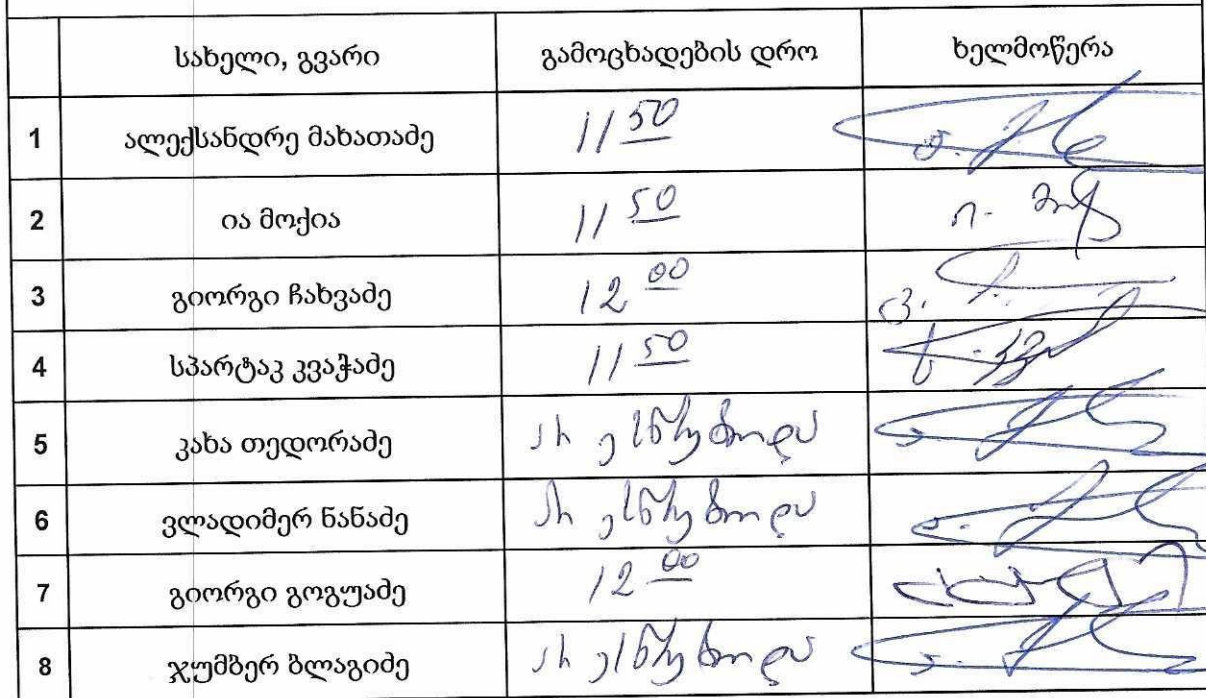 სახელი, გვარი გამოცხადების დრო ხელმოწერა
1 ალექსანდრე მახათაძე 11 50
2 ია მოქია 11 50
3 გიორგი ჩახვაძე 12 00
4 სპარტაკ კვაჭაძე 11 50
5 კახა თედორაძე არ ესწრებოდა
6 ვლადიმერ ნანაძე არ ესწრებოდა
7 გიორგი გოგუაძე 12 00
8 ჯუმბერ ბლაგიძე არ ესწრებოდა